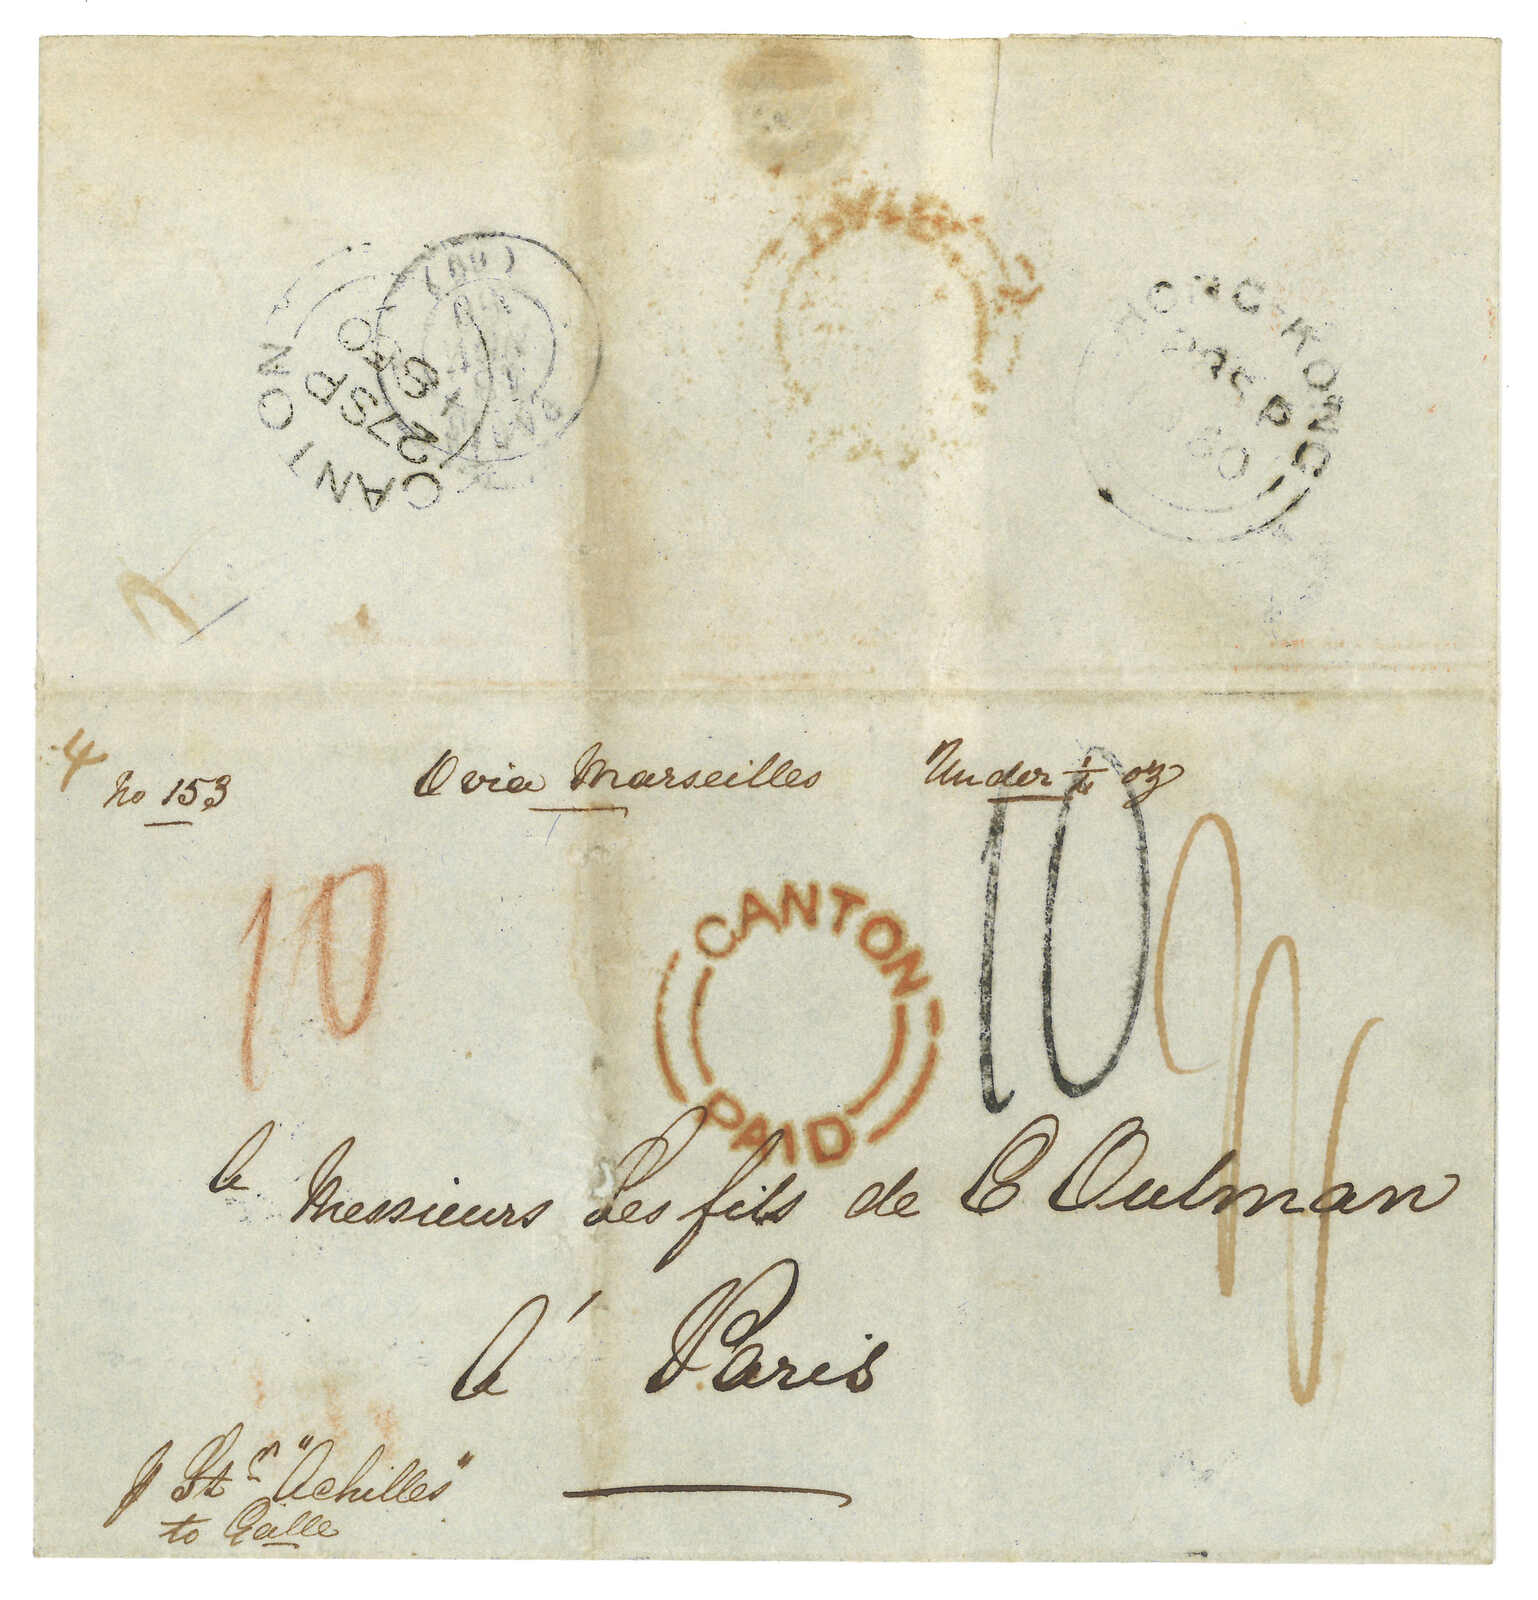 CANTON
27 SP
HONG-KONG
SP
60
4
No 153
via Marseilles
Under 1/4 oz
10
CANTON
PAID
10
Messieurs Les fils de C Oulman
à Paris
p Str "Achilles"
to Galle